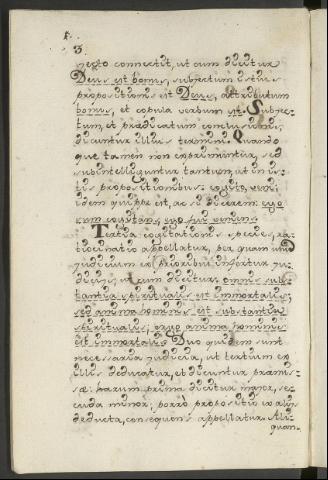 3
necto connectit, ut cum dicitur
Deus est bonus, subjectum istius
propositionis est Deus, attributum
bonus, et copula verbum est. Subjec-
tum, et prædicatum conclusionis,
dicuntur illius termini. Quando
que tamen non exprimuntur, sed
subintelliguntur tantum, ut in is-
tis propositionibus: cogito, veni:
idem quippe est, ac si dicerem: ego
sum cogitans, ego fui veniens.
Tertia cogitationis species, ra-
tiocinatio appellatur, per quam unum
judicium ex prioribus infertur ju-
diciis, ut cum dicitur: omnis subs-
tantia spiritualis est immortalis;
sed anima hominis est substantia
spiritualis, ergo anima hominis
est immortalis. Duo quidem sunt
necessaria judicia, ut tertium ex
illis deducatur, et dicuntur præmis-
sæ: harum prima dicitur major, se-
cunda minor; porrò propositio ex aliis
deducta, consequens appellatur. Ali-
quan-